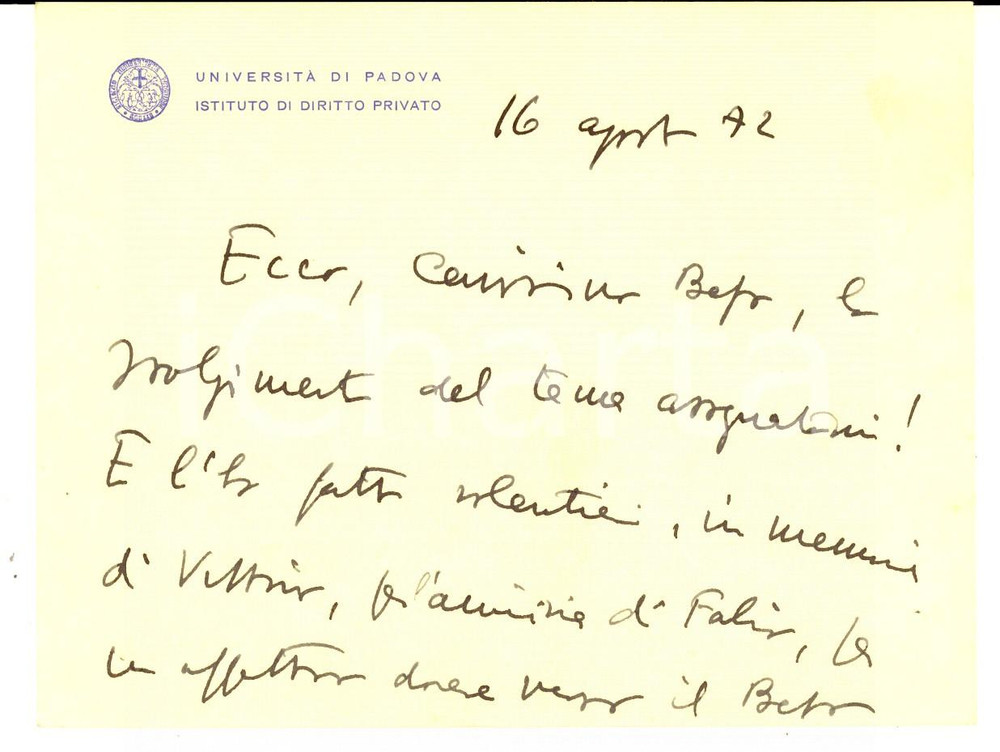 UNIVERSITÀ DI PADOVA
ISTITUTO DI DIRITTO PRIVATO
16 agosto 72
Ecco, carissimo Bepo, lo
svolgimento del tema assegnatomi!
E l'ho fatto volentieri, in memoria
di Vittorio, per l'amicizia di Fabio, per
un affettuoso dovere verso il Bepo
iCharta